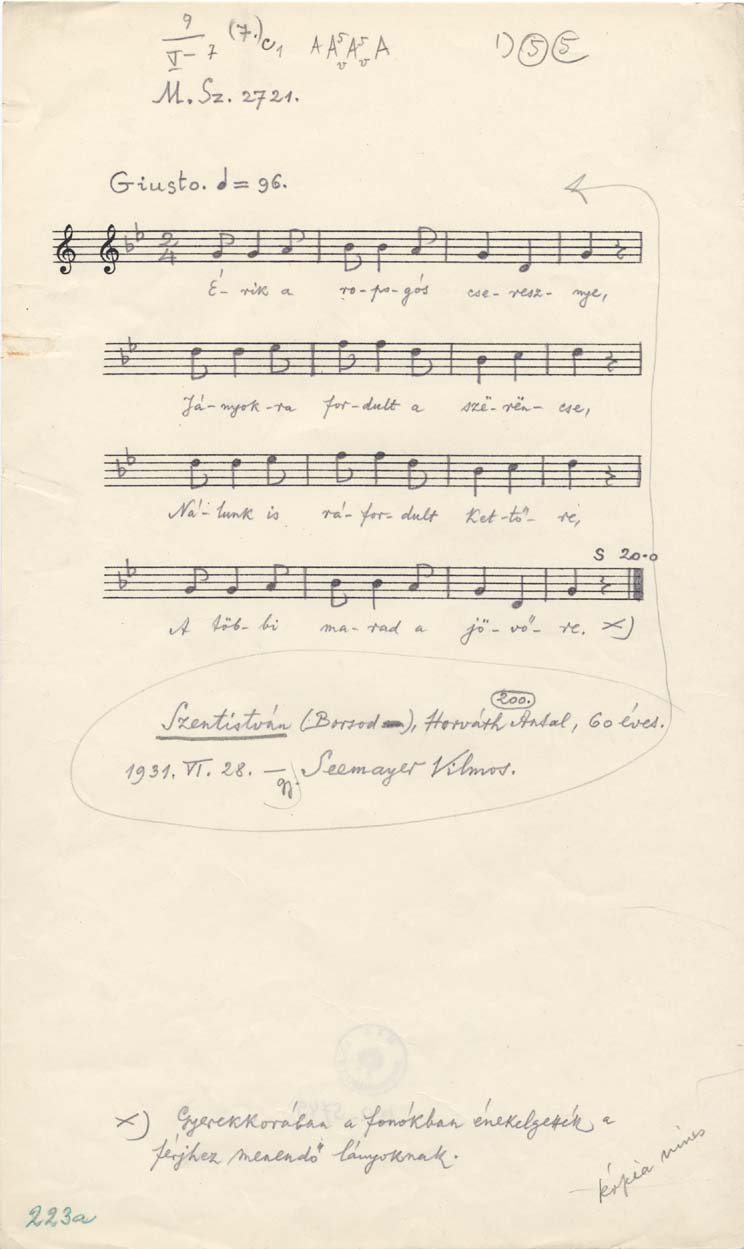 9
V – 7 (7.) c1 A A5v A5v A 1) 5 5
M. Sz. 2721.
Giusto. = 96.
2
4
É- rik a ro-po-gós cse-resz- nye,
Já-nyok-ra for-dult a szë-rën- cse,
Ná-lunk is rá-for-dult ket-tő- re,
S 20.0
A töb-bi ma-rad a jö-vő- re. ×)
200.
Szentistván (Borsod), Horváth Antal, 60 éves.
1931. VI. 28. – gy. Seemayer Vilmos.
×) Gyerekkorában a fonókban énekelgették a
férjhez menendő lányoknak.
kópia nincs
223a